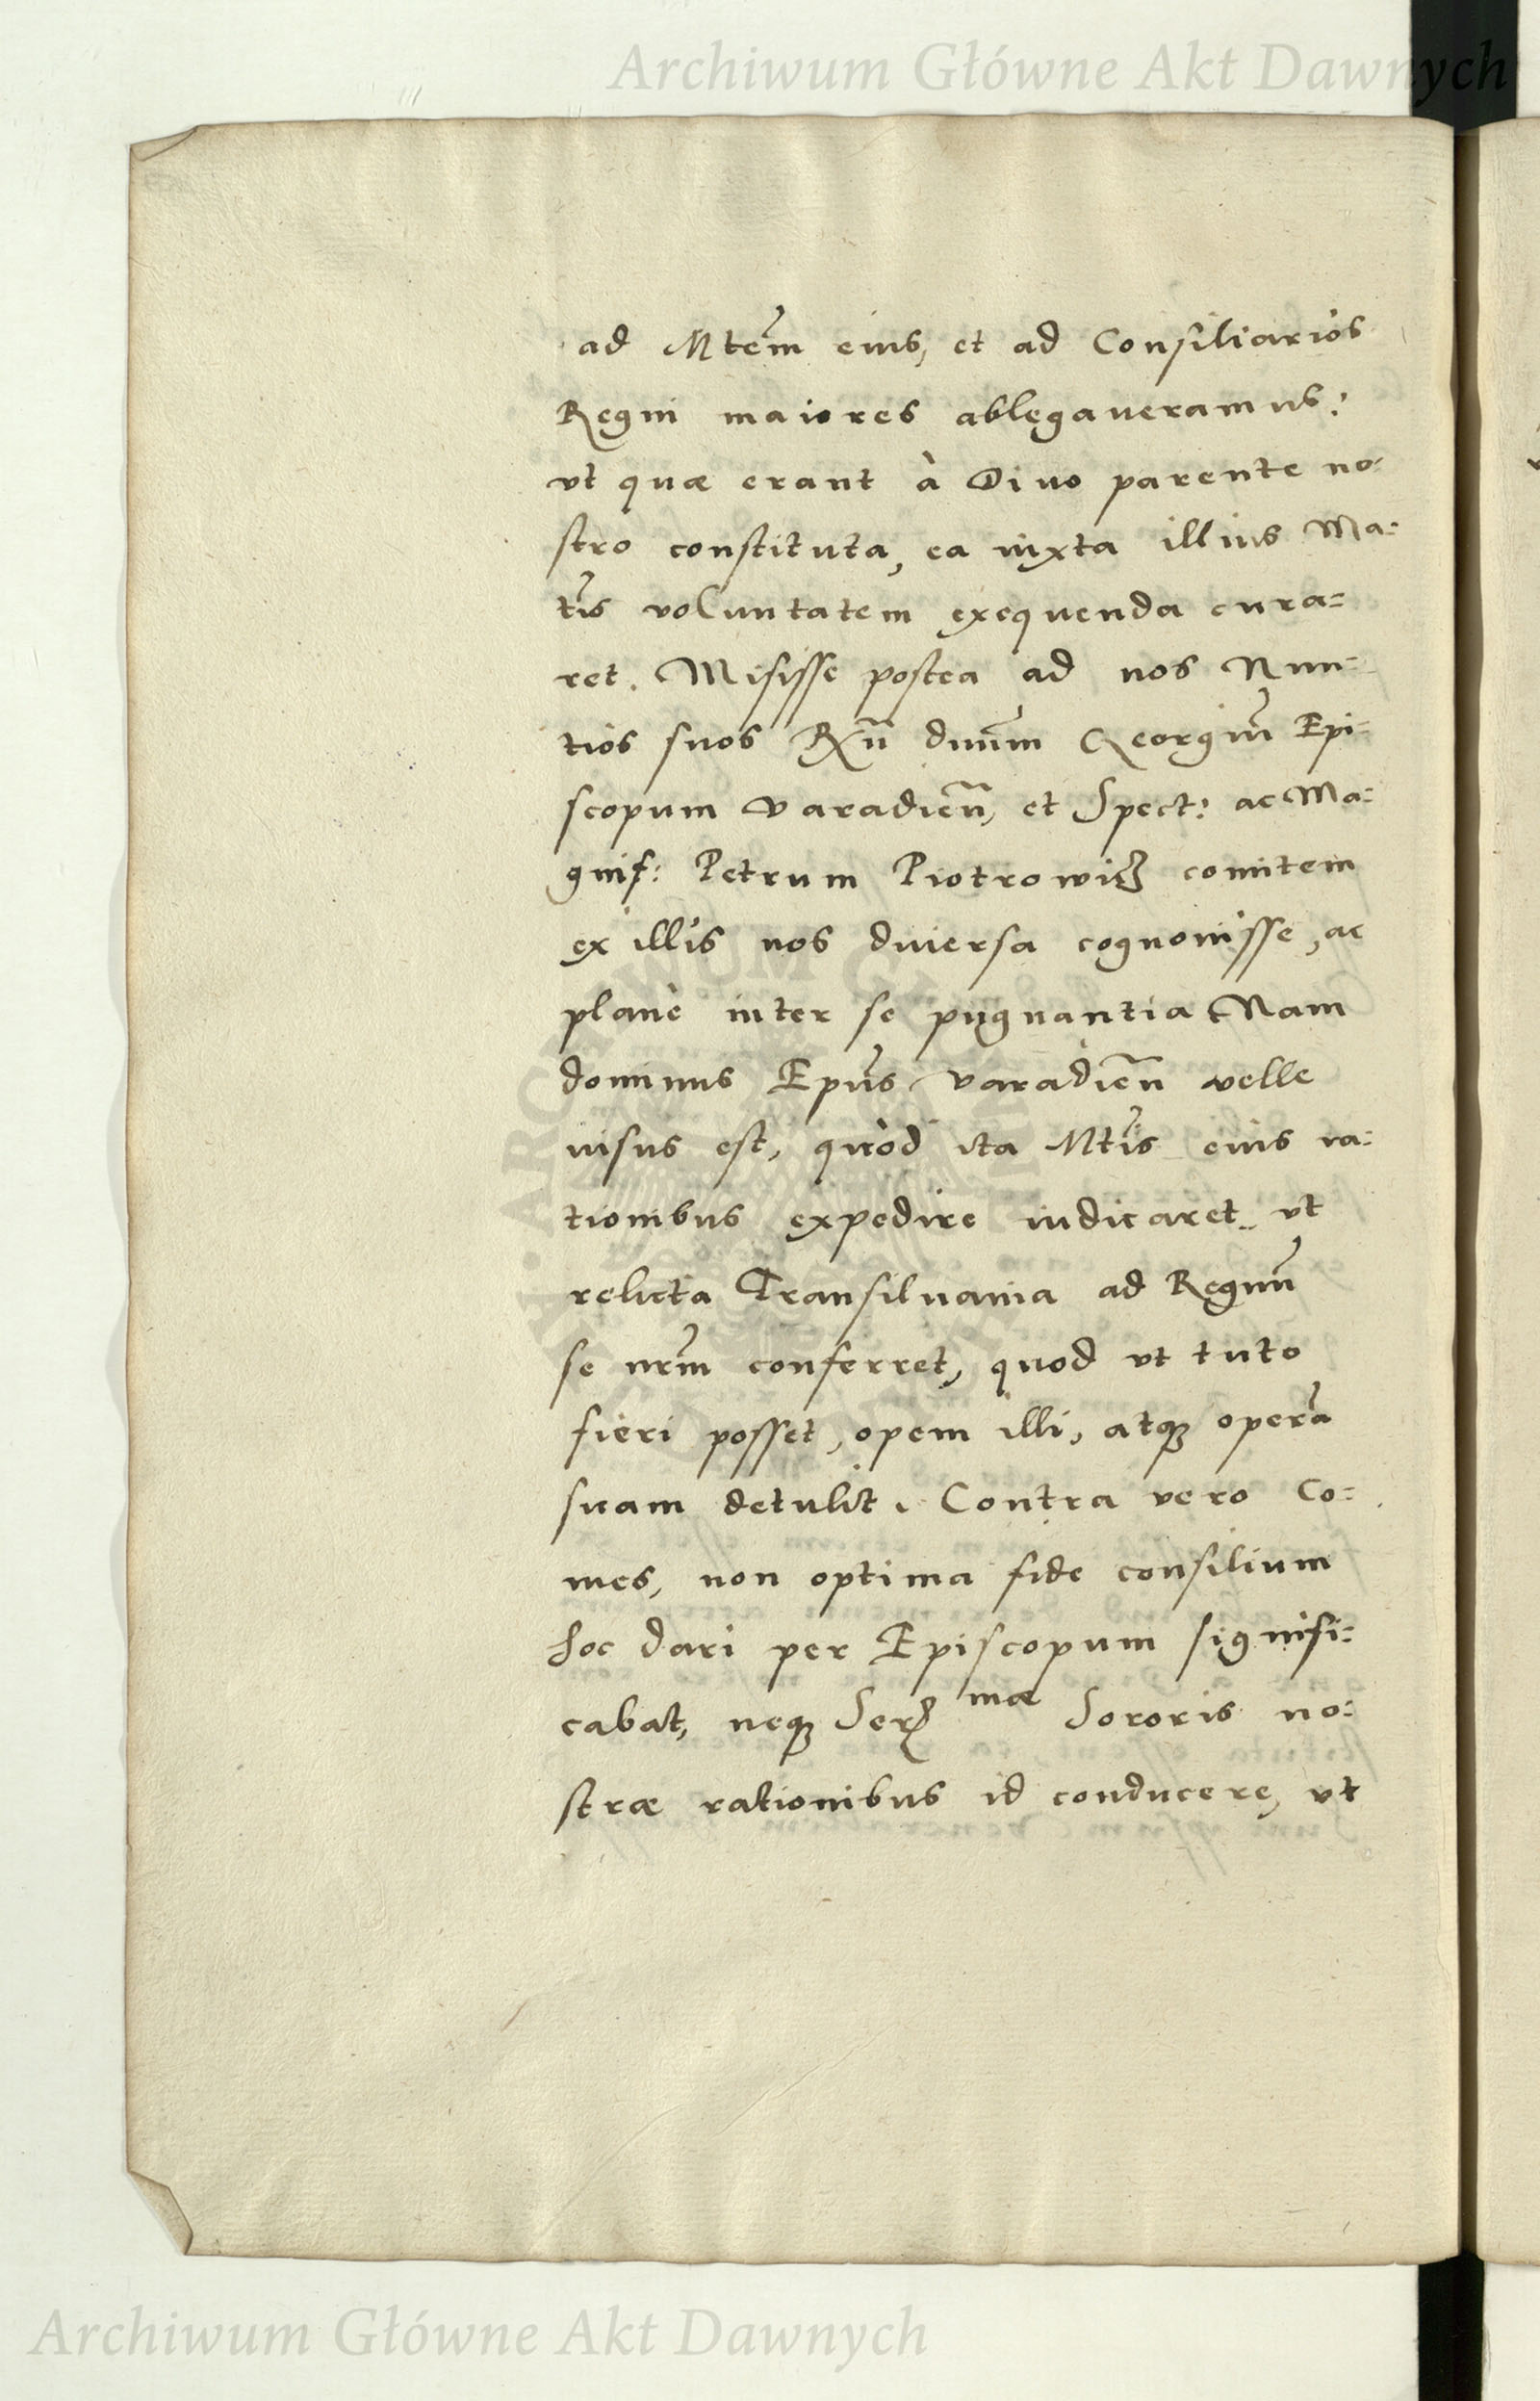 Archiwum Główne Akt Dawnych
ad Mtem̃ eius, et ad Consiliarios
Regni maiores ablegaueramus:
vt quæ erant à Diuo parente no-
stro constituta, ea iuxta illius Ma-
tis̃ voluntatem exequenda cura=
ret. Misisse postea ad nos Nun-
tios suos Rñ dnũm Georgiũ Epi-
scopum Varadieñ, et Spect: ac Ma-
gnif: Petrum Piotrowicz comitem
ex illis nos diuersa cognouisse, ac
planè inter se pugnantia Nam
dominus Epũs Varadieñ velle
uisus est, quòd ita Mtĩs eius ra-
tionibus expedire iudicaret, vt
relicta Transiluania ad Regnũ
se nrm̃ conferret, quod vt tuto
fieri posset, opem illi, atq; operã
suam detulit. Contra vero Co-
mes, non optima fide consilium
hoc dari per Episcopum signifi-
cabat, neq; Ser mæ Sororis no-
stræ rationibus id conducere, vt
Archiwum Główne Akt Dawnych